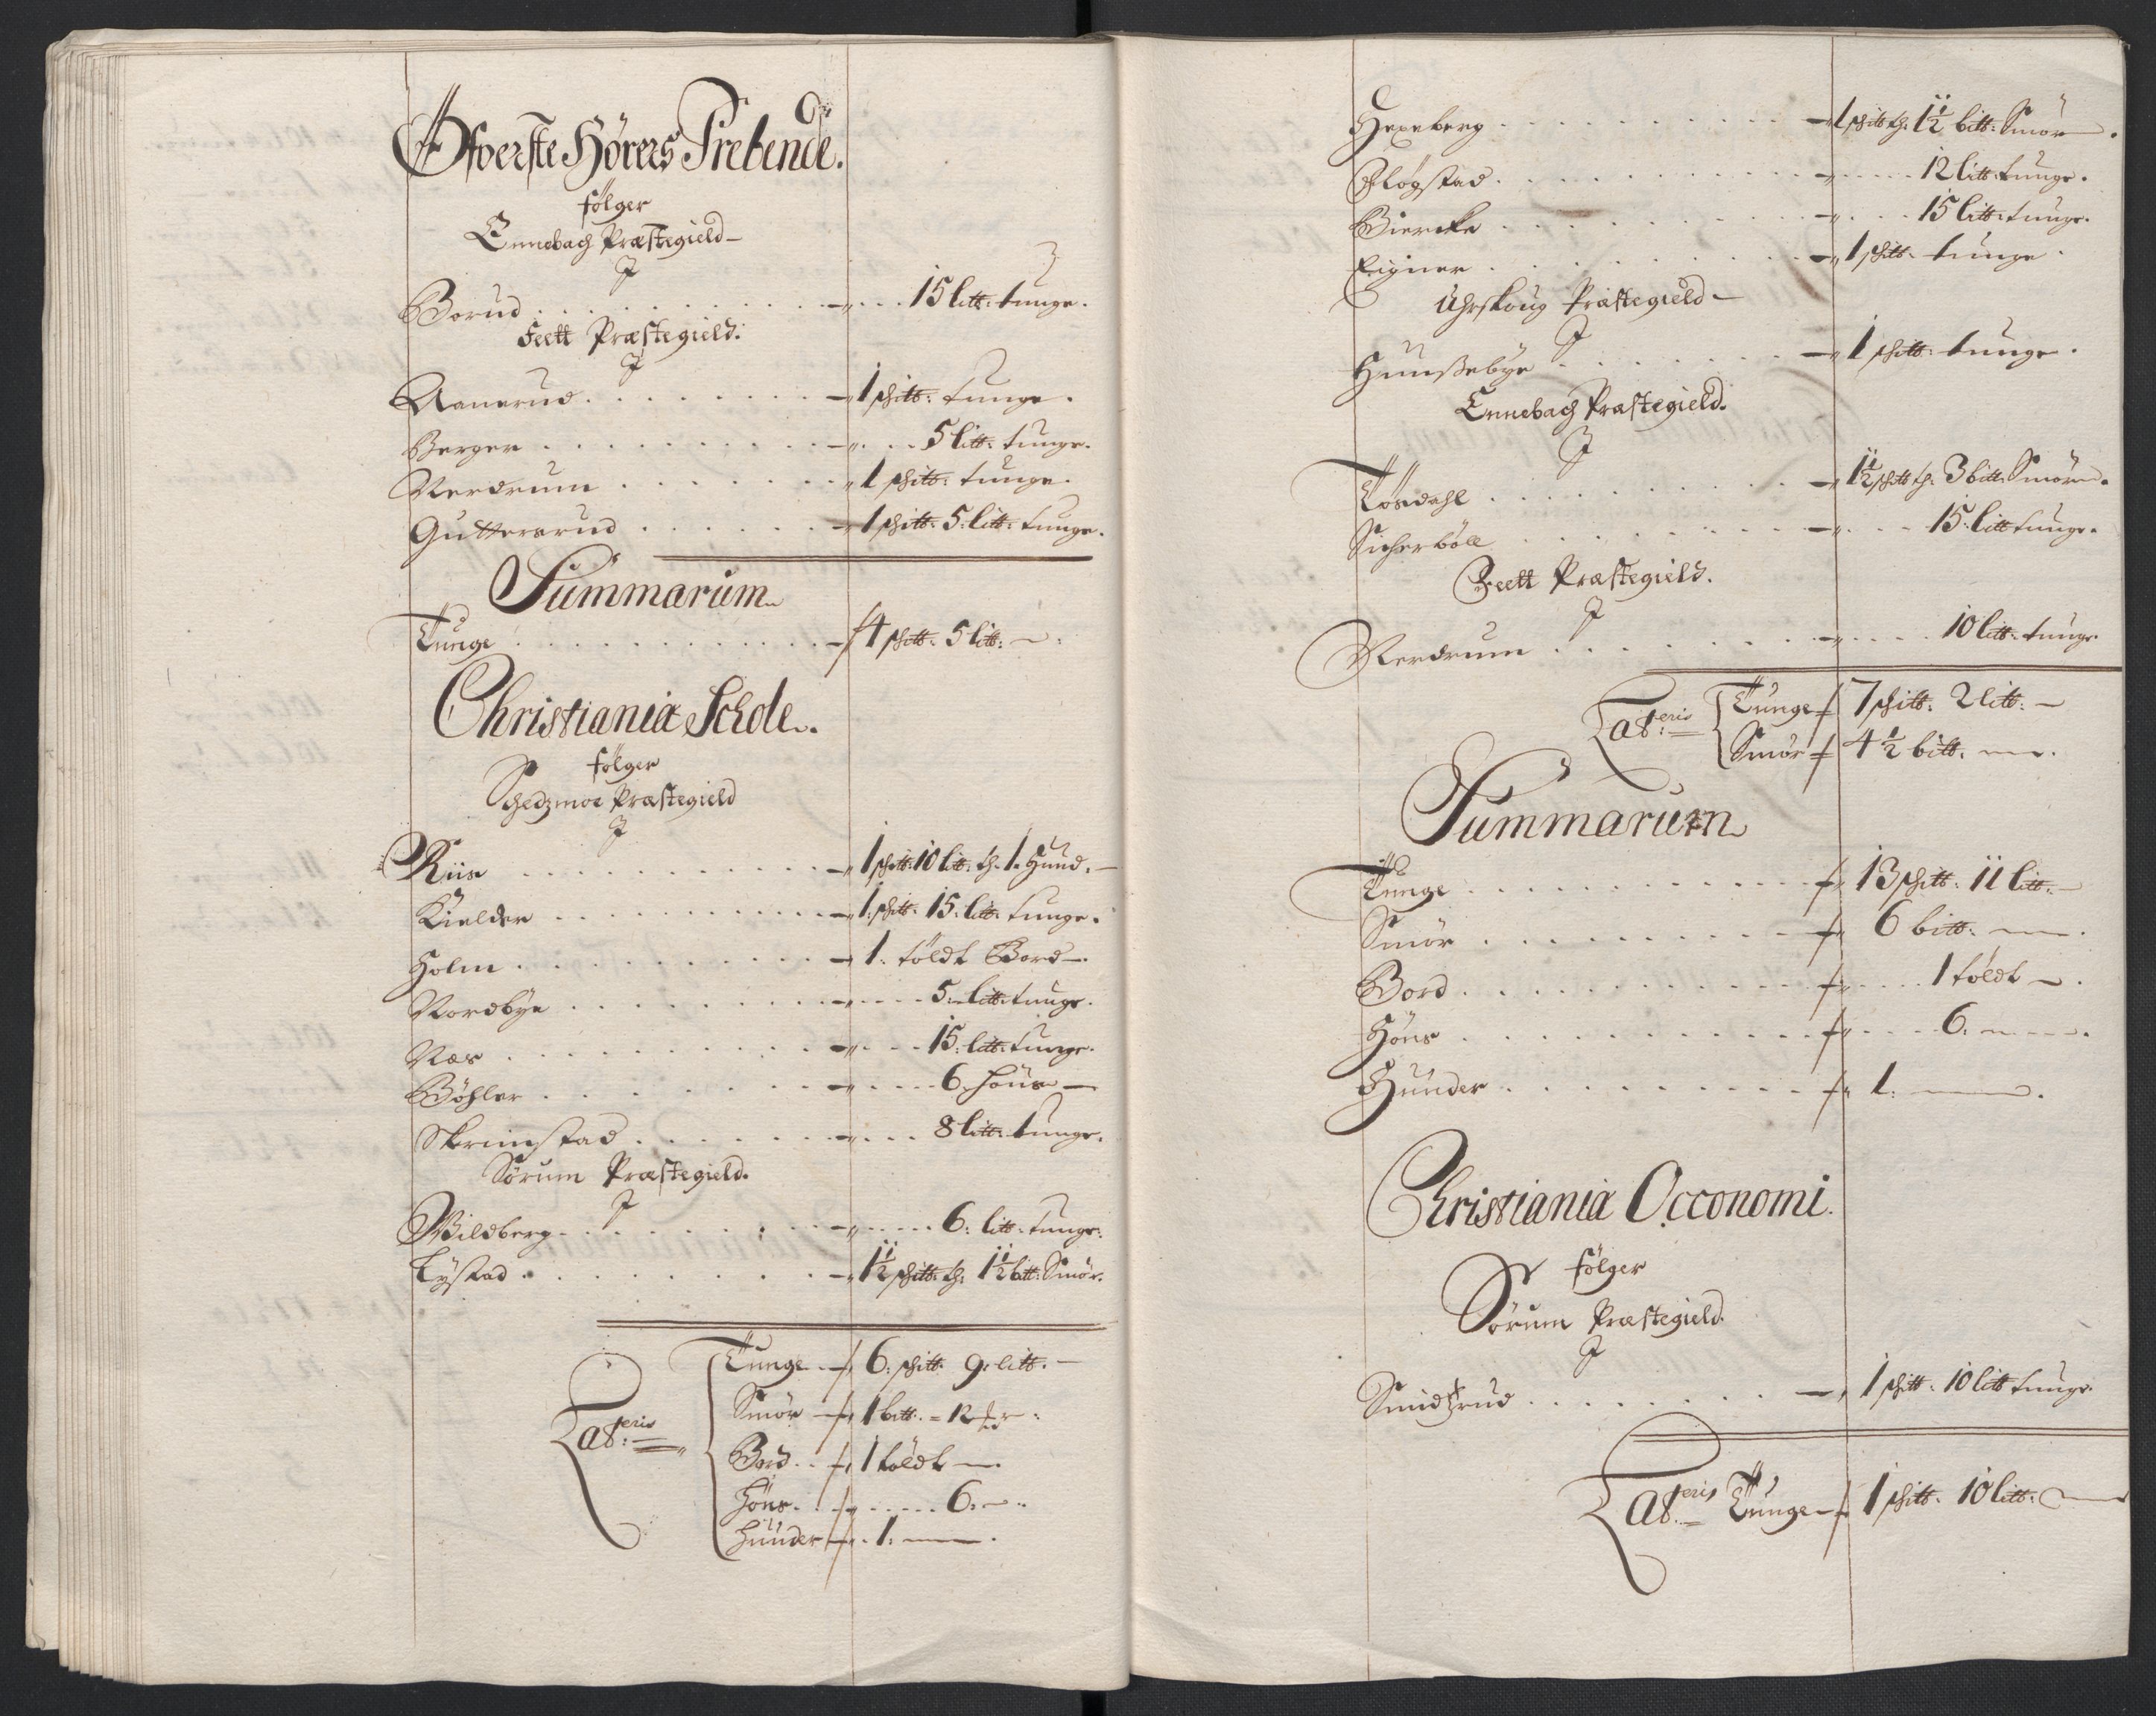 Øfverste Hörers Prebende.
følger
Ennebach Præstegield
J
Borud . . . 15 litt: tunge.
Feett Præstegield:
J
Aanerud . . . 1 schitt: tunge.
Berger . . . 5 litt: tunge.
Nerdrum . . . 1 schitt: tunge.
Guttersrud . . . 1 schitt: 5: litt: tunge.
Summarum
Tunge . . . 4 schitt: 5 litt:
Christiania Schole.
følger
Schedzmoe Præstegield
J
Riis . . . 1 schitt: 10 litt: th. 1. Hund.
Kielder . . . 1: schitt: 15: litt: tunge.
Holm . . . 1: töldt Bord.
Nordbye . . . 5: litt: tunge.
Næs . . . 15: litt: tunge.
Böhler . . . 6. höns
Skrimstad . . . 8 litt: tunge.
Sörum Præstegield.
J
Wildberg . . . 6: litt: tunge.
Lystad . . . 1½ schitt: th: 1½ bitt: Smör.
Lat:eris
Tunge 6: schitt: 9: litt.
Smör 1 bitt: = 12
Bord . . 1 töldt
Höns . . . 6:
Hunder . 1:
Hexeberg . . . 1 schitt th: 1½ bitt: Smör.
Fløgstad . . . 12 litt: tunge.
Biercke . . . 15 litt: tunge.
Eigner . . . 1 schitt: tunge.
Uhrskoug Præstegield
J
Hunßebye . . . 1 schitt: tunge.
Ennebach Præstegield.
J
Tösdahl . . . 1½ schitt th: 3 bitt: Smör.
Sicherböll . . . 15: litt tunge.
Feett Præstegield.
J
Nerdrum . . . 10 litt: tunge
Lat:eris
Tunge 7 schitt: 2 litt:
Smör 4½ bitt:
Summarum
Tunge . . . 13 schitt: 11 litt:
Smör . . . 6 bitt:
Bord . . . 1 töldt
Höns . . . 6:
Hunder . . . 1:
Christiania Oeconomi.
følger
Sörum Præstegield.
J
Smidtrud . . . 1 schitt: 10 litt tunge.
Lat:eris Tunge 1 schitt: 10 litt: